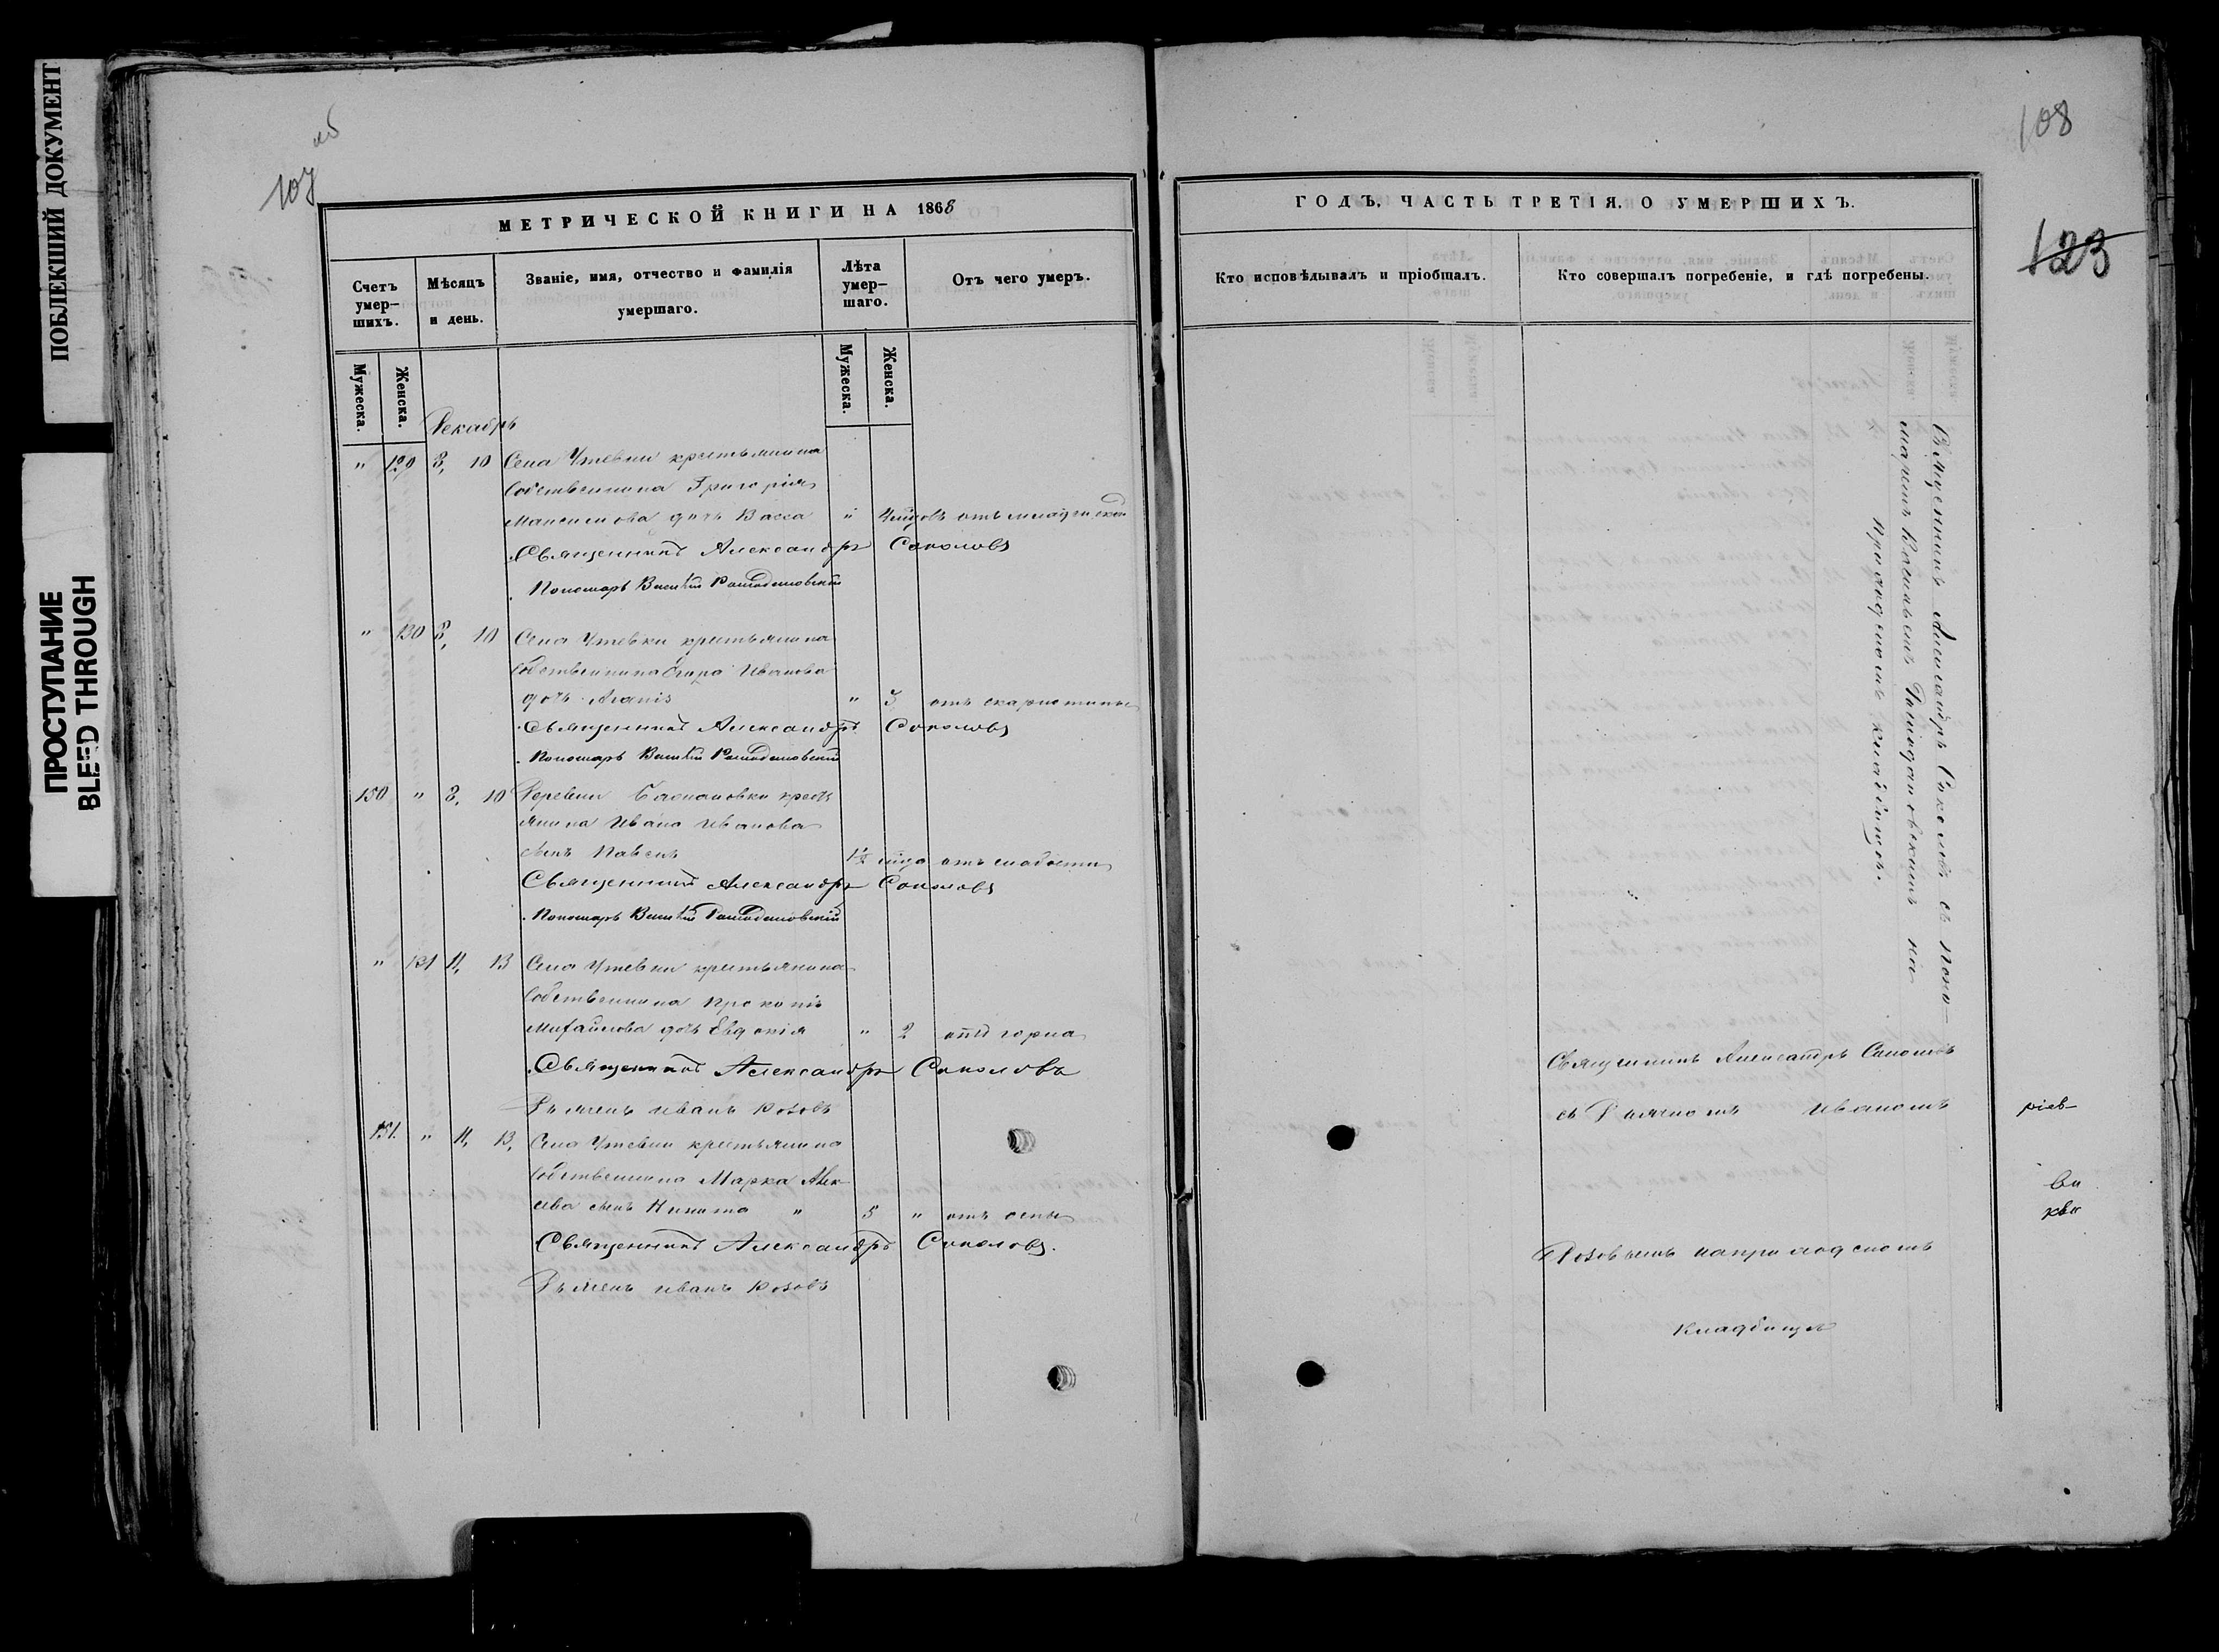 ПОБЛЕКШИЙ ДОКУМЕНТ
ПРОСТУПАНИЕ
BLEED THROUGH
107 об
МЕТРИЧЕСКОЙ КНИГИ НА 1868
Счетъ умер-шихъ.
Мѣсяцъ и день.
Званіе, имя, отчество и фамилія умершаго.
Лѣта умер-шаго.
Отъ чего умеръ.
Мужеска.
Женска.
Мужеска.
Женска.
Декабрь
" 129 8, 10 Села Утевки крестьянина
собственника Григорія
Максимова дочь Васса "
Священникъ Александръ Соколовъ
Пономарь
" 130 8, 10 Села Утевки крестьянина
собственника Егора Иванова
дочь " 3 отъ скарлатины
Священникъ Александръ Соколовъ
Пономарь
150 " 8, 10 Деревни кресть
янина Ивана Иванова
сынъ Павелъ 1½ года отъ слабости
Священникъ Александръ Соколовъ
Пономарь
" 131 11, 13 Села Утевки крестьянина
собственника Прокопія
Михайлова дочь Евдокія " 2 отъ горла
Священникъ Александръ Соколовъ
Дьяконъ Иванъ Розовъ
151. " 11, 13, Села Утевки крестьянина
собственника Марка Алек-
сѣева сынъ Никита " 5 " отъ оспы
Священникъ Александръ Соколовъ.
Дьяконъ Иванъ Розовъ
108
123
ГОДЪ, ЧАСТЬ ТРЕТІЯ, О УМЕРШИХЪ.
Кто исповѣдывалъ и пріобщалъ.
Кто совершалъ погребеніе, и гдѣ погребены.
Священникъ Александръ Соколовъ съ поно-
маремъ на
приходскомъ кладбищѣ.
Священникъ Александръ Соколовъ
съ Дьякономъ Иваномъ
Розовымъ на приходскомъ
кладбищѣ